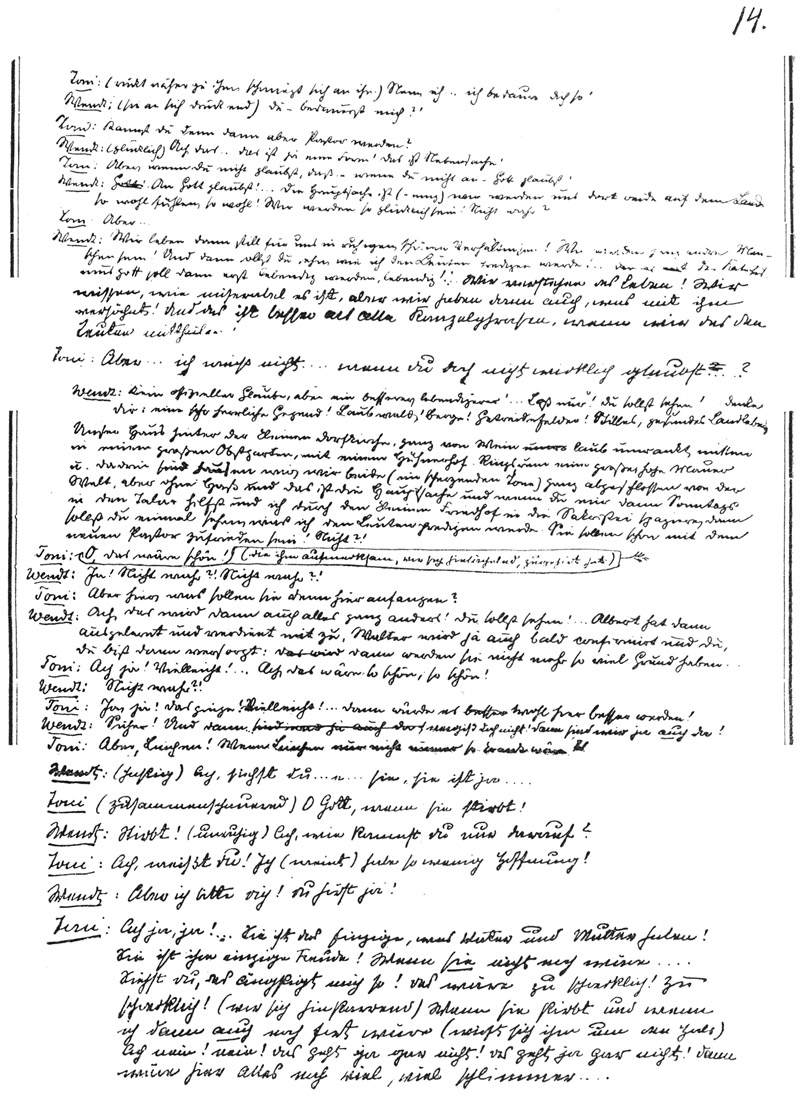 14.
Toni: (rückt näher zu ihm schmiegt sich an ihn.) Nein ich.. ich bedaure dich so!
Wendt: (sie an sich drückend) du - bedauerst mich?!
Toni: Kannst du denn dann aber Pastor werden?
Wendt: (glücklich) Ach das.. das ist ja eine Form! das ist Nebensache!
Toni: Aber, wenn du nicht glaubst, daß - wenn du nicht an - Gott glaubst!
Wendt: An Gott glaubst!... Die Hauptsache ist (- eng) wir werden uns dort beide auf dem Lande
so wohl fühlen, so wohl! Wir werden so glücklich sein! Nicht wahr?
Toni: Aber...
Wendt: Wir leben dann still für uns in ruhigen schönen Verhältnissen! Wir werden ganz andre Men-
schen sein! Und dann sollst du sehn, wie ich den Leuten predigen werde!...
muß Gott soll dann erst lebendig werden, lebendig!... Wir verstehen das Leben! Wir
wissen, wie miserabel es ist, aber wir haben dann auch, was mit ihm
versöhnt! Und das ist besser als alle Kanzelphrasen, wenn wir das den
Leuten mittheilen!
Toni: Aber... ich weiß nicht.... wenn du doch nicht wirklich glaubst...?
Wendt: Kein offizieller Glaube, aber ein besserer lebendigerer!... Laß nur! du sollst sehen! denke
dir: eine sehr herrliche Gegend! Laubwald! Berge! Getreidefelder! Stilles, gesundes Landleben
Unser Haus hinter der kleinen Dorfkirche, ganz von Weinlaub umrankt, mitten
in einem großen Obstgarten, mit einem Hühnerhof. Ringsum eine große, hohe Mauer
u. dadrin wir beide (in scherzendem Tone) ganz abgeschlossen von der
Welt, aber ohne Haß und das ist die Hauptsache und wenn du mir dann Sonntags
in den Talar hilfst und ich durch den kleinen Friedhof in die Sakristei spaziere, dann
sollst du einmal sehen, was ich den Leuten predigen werde. Sie sollen schon mit dem
neuen Pastor zufrieden sein! Nicht?!
Toni: O, das wäre schön! (die ihm aufmerksam, vor sich hinlächelnd, zugehört hat)
Wendt: Ja! Nicht wahr?! Nicht wahr?!
Toni: Aber hier, was sollen sie denn hier anfangen?
Wendt: Ach, das wird dann auch alles ganz anders! Du sollst sehen!... Albert hat dann
ausgelernt und verdient mit zu, Walter wird ja auch bald confirmirt und du,
du bist dann versorgt: das wird dann werden sie nicht mehr so viel Grund haben..
Toni: Ach ja! Vielleicht!... Ach, das wäre so schön, so schön!
Wendt: Nicht wahr?!
Toni: Ja, ja! das ginge! Vielleicht!... dann würde es besser wohl hier besser werden!
Wendt: Sicher! Und dann vergiß doch nicht! dann sind wir ja auch da!
Toni: Aber, Linchen! Wenn Linchen nur nicht immer so krank wäre
Wendt: (hustig) Ach, siehst du...n... sie, sie ist ja....
Toni (zusammenschauernd) O Gott, wenn sie stirbt!
Wendt: Stirbt! (unruhig) Ach, wie kommst du nur darauf?
Toni: Ach, weißt du! Ich (weint) habe so wenig Hoffnung!
Wendt: Aber ich bitte dich! du siehst ja!
Toni: Ach ja, ja!... Sie ist das Einzige, was Vater und Mutter haben!
Sie ist ihre einzige Freude! Wenn sie nicht noch wäre....
Siehst du, das ängstigt mich so! das wäre zu schrecklich! Zu
schrecklich! (vor sich hinstarrend) Wenn sie stirbt und wenn
ich dann auch noch fort wäre (wirft sich ihm um den Hals)
Ach nein! nein! das geht ja gar nicht! das geht ja gar nicht! dann
wäre hier Alles noch viel, viel schlimmer....